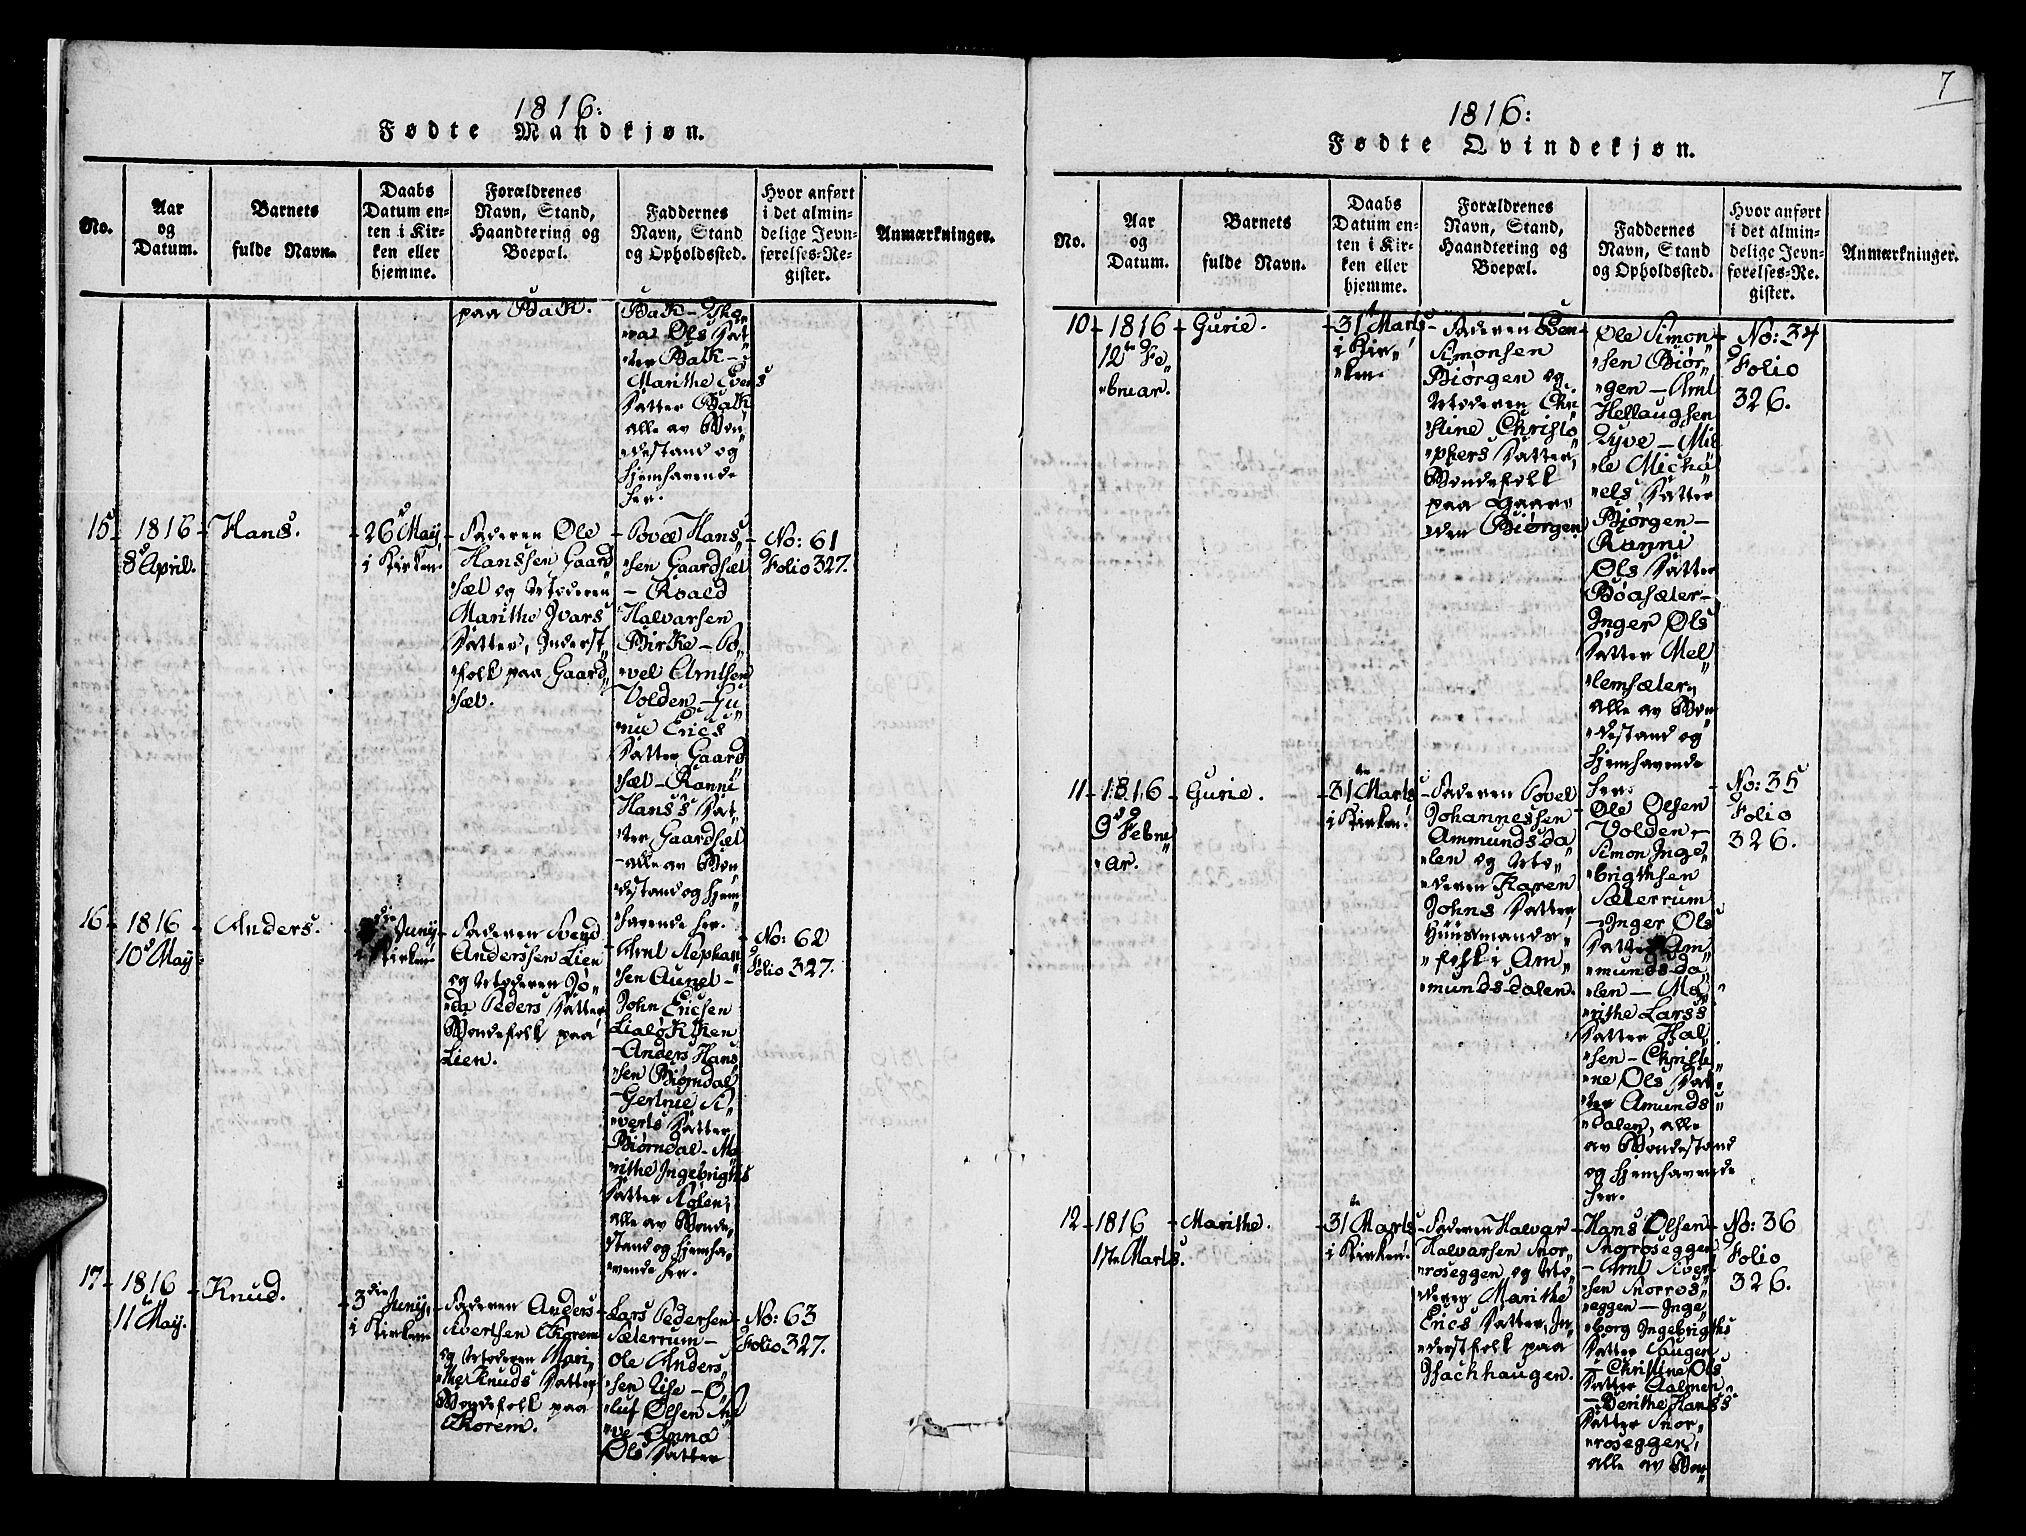 1816:
Fødte Mandkjøn.
No.
Aar
og
Datum.
Barnets
fulde Navn.
Daabs
Datum en-
ten i Kir-
ken eller
hjemme.
Forældrenes
Navn, Stand,
Haandtering og
Boepæl.
Faddernes
Navn, Stand
og Opholdssted.
Hvor anført
i det almin-
delige Jevn-
førelses-Re-
gister.
Anmærkninger.
paa Balk.
Balk - 
Ols Dat
ter Balk -
Marithe Evens
Datter Balk
alle av Bon
destand og
hjemhavende
her.
15
1816
8 April.
Hans.
26 May
i Kirken.
Faderen Ole
Hanssen Gaard
sæl og Moderen
Marithe Ivars
Datter, Inderst
folk paa Gaard
sæl.
Hans
sen Gaardsæl
- Roald
Halvorsen
Birke - Po
vel Arntsen
Volden - Gu
rue Erics
Datter Gaard
sæl - Ranni
Hans's Dat
ter Gaardsæl
- alle av Bon
destand og hjem
havende her.
No: 61
Folio 327.
16
1816
10 May
Anders.
Juny
i Kirken
Faderen Svend
Anderssen Lien
og Moderen
Peders Datter
Bondefolk paa
Lien.
Arnt Stephan
sen Aunet -
John Ericsen
Lialøkken
- Anders Hans
sen Biørndal
- Gertrue Si
verts Datter
Biørndal - Ma
rithe Ingebrigths
Datter Stølen,
alle av Bonde
stand og hjemha
vende her.
No: 62
Folio 327.
17
1816
11 May.
Knud.
3die Juny,
i Kirken
Faderen Anders
Sivertsen Chorem
og Moderen Mari
the Knuds Datter
Bondefolk paa
Chorem.
Lars Pedersen
Sæterrum -
Ole Anders
sen Lise - O
luf Olsen
- Anna
Ols Datter
No: 63
Folio 327.
7
1816:
Fødte Qvindekjøn.
No.
Aar
og
Datum.
Barnets
fulde Navn.
Daabs
Datum en-
ten i Kir-
ken eller
hjemme.
Forældrenes
Navn, Stand,
Haandtering og
Boepæl.
Faddernes
Navn, Stand
og Opholdssted.
Hvor anført
i det almin-
delige Jevn-
førelses-Re-
gister.
Anmærkninger.
10
1816
12te Fe
bruar.
Gurie.
31 Marts
i Kir
ken.
Faderen Even
Simonsen
Biørgen og
Moderen Chri
stine Christo
phers Datter,
Bondefolk
paa Gaar
den Biørgen
Ole Simon
sen Biør
gen - Arnt
Hellaugsen
Tyve - Mil
le Micha
els Datter
Biørgen -
Ranni
Ols Datter
Böasæter -
Inger Ols
Datter Mel
lemsæter,
alle av Bon
destand og
hjemhavende
her.
No: 34
Folio
326.
11
1816
9 Febru
ar.
Gurie.
31 Marts
i Kirken.
Faderen Povel
Johannessen
Ammundsda
len og Mo
deren Karen
Johns Datter
Huusmands
folk i Am
mundsdalen.
Ole Olsen
Volden -
Simon Inge
brigthsen
Sæterrum
- Inger Ols
Datter Am
mundsda
len - Ma
rithe Lars's
Datter Hal
sen - Christi
ne Ols Dat
ter Amunds
dalen, alle
av Bondestand
og hjemhavende
her.
No: 35
Folio
326.
12
1816
17te Marts.
Marithe.
31te Marts
i Kirken.
Faderen Halvar
Halvarsen Snor
roseggen og Mo
deren Marithe
Erics Datter, In
derstfolk paa
Bachhaugen.
Hans Olsen
Snorroseggen
- Arnt Siver
sen Snorros
eggen - Inge
borg Ingebrigths
Datter Haugen
- Christine Ols
Datter Aalmen
- Berithe Hans's
Datter Snor
roseggen,
alle av Bon
No: 36
Folio
326.